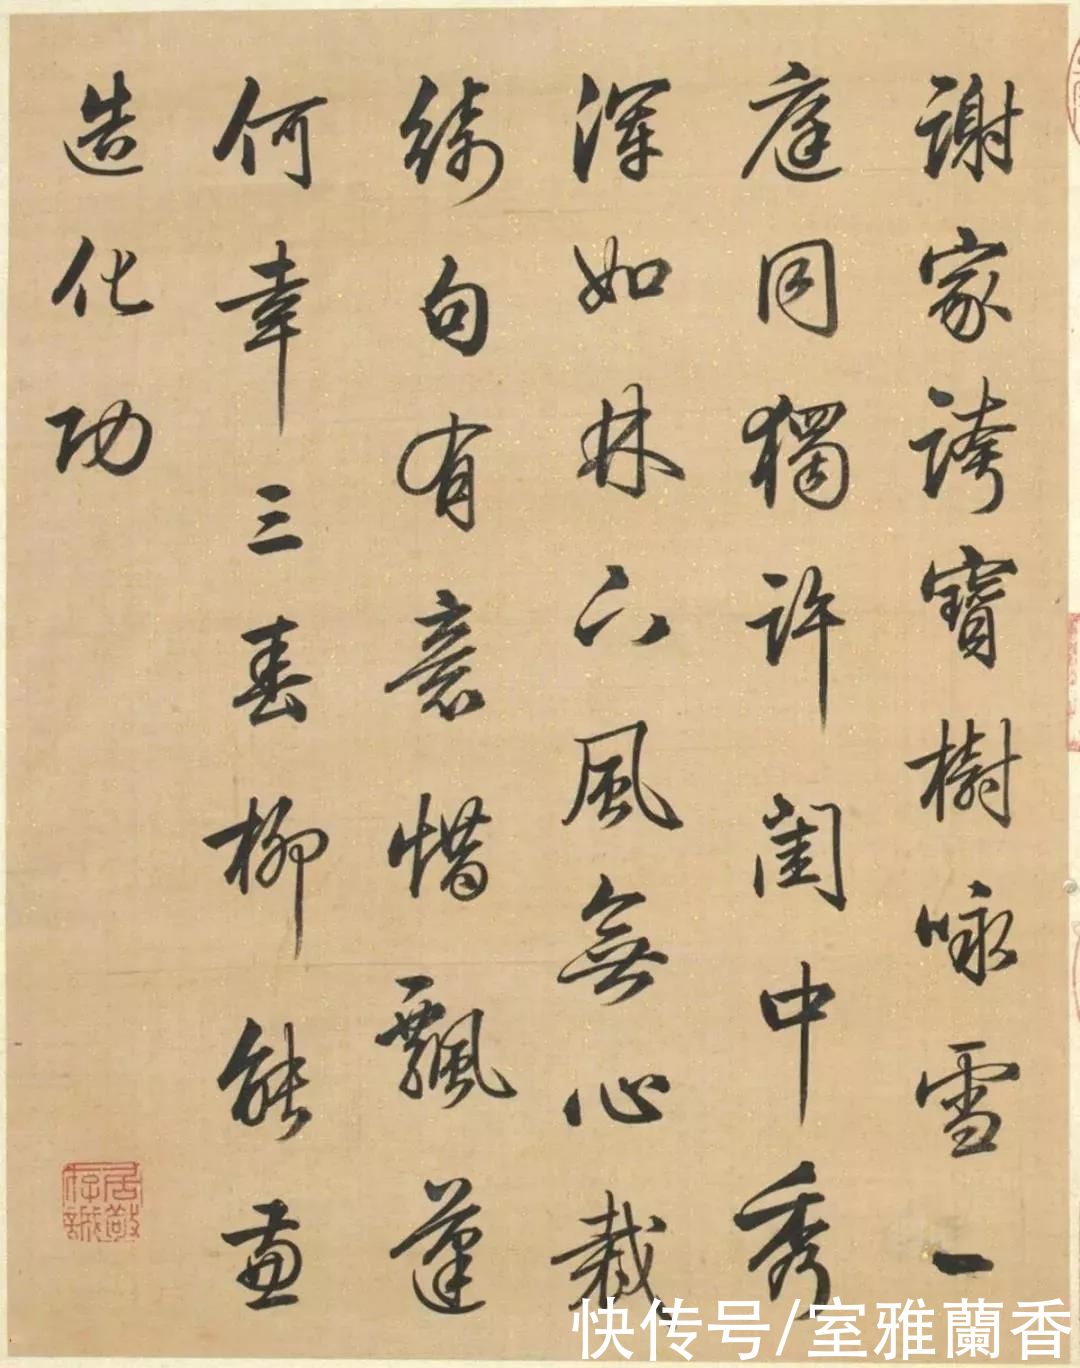 謝家誇寶樹咏雪一
庭同獨許閨中秀
渾如林下風無心裁
綺句有意惜飄蓬
何幸三春柳能畫
造化功
居敬存誠
快传号/室雅蘭香